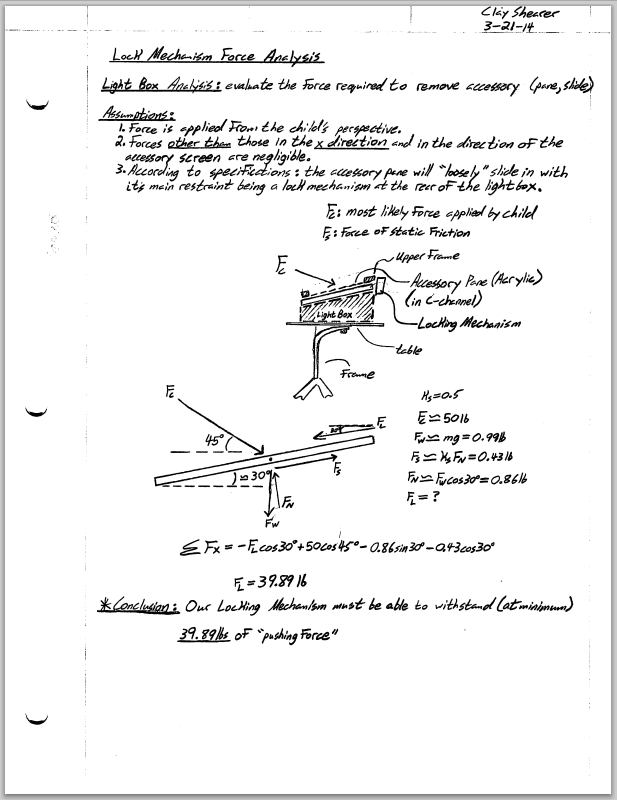 Clay Shearer
3-21-14
Lock Mechanism Force Analysis
Light Box Analysis: evaluate the force required to remove accessory (pane, slide)
Assumptions:
1. Force is applied from the child's perspective.
2. Forces other than those in the x direction and in the direction of the
accessory screen are negligible.
3. According to specifications: the accessory pane will "loosely" slide in with
it's main restraint being a lock mechanism at the rear of the lightbox.
Fc: most likely Force applied by child
Fs: Force of static Friction
Fc
Upper Frame
Accessory Pane (Acrylic)
(in C-channel)
Light Box
Locking Mechanism
table
Frame
Fc
45°
30°
FL
Fs
≃30°
FN
FW
μs=0.5
Fc≃50lb
Fw≃mg=0.99lb
Fs≃μsFN=0.43lb
FN≃Fwcos30°=0.86lb
FL=?
ΣFx = -FLcos30°+50cos45°-0.86sin30°-0.43cos30°
FL=39.89lb
*Conclusion: Our Locking Mechanism must be able to withstand (at minimum)
39.89lbs of "pushing Force"